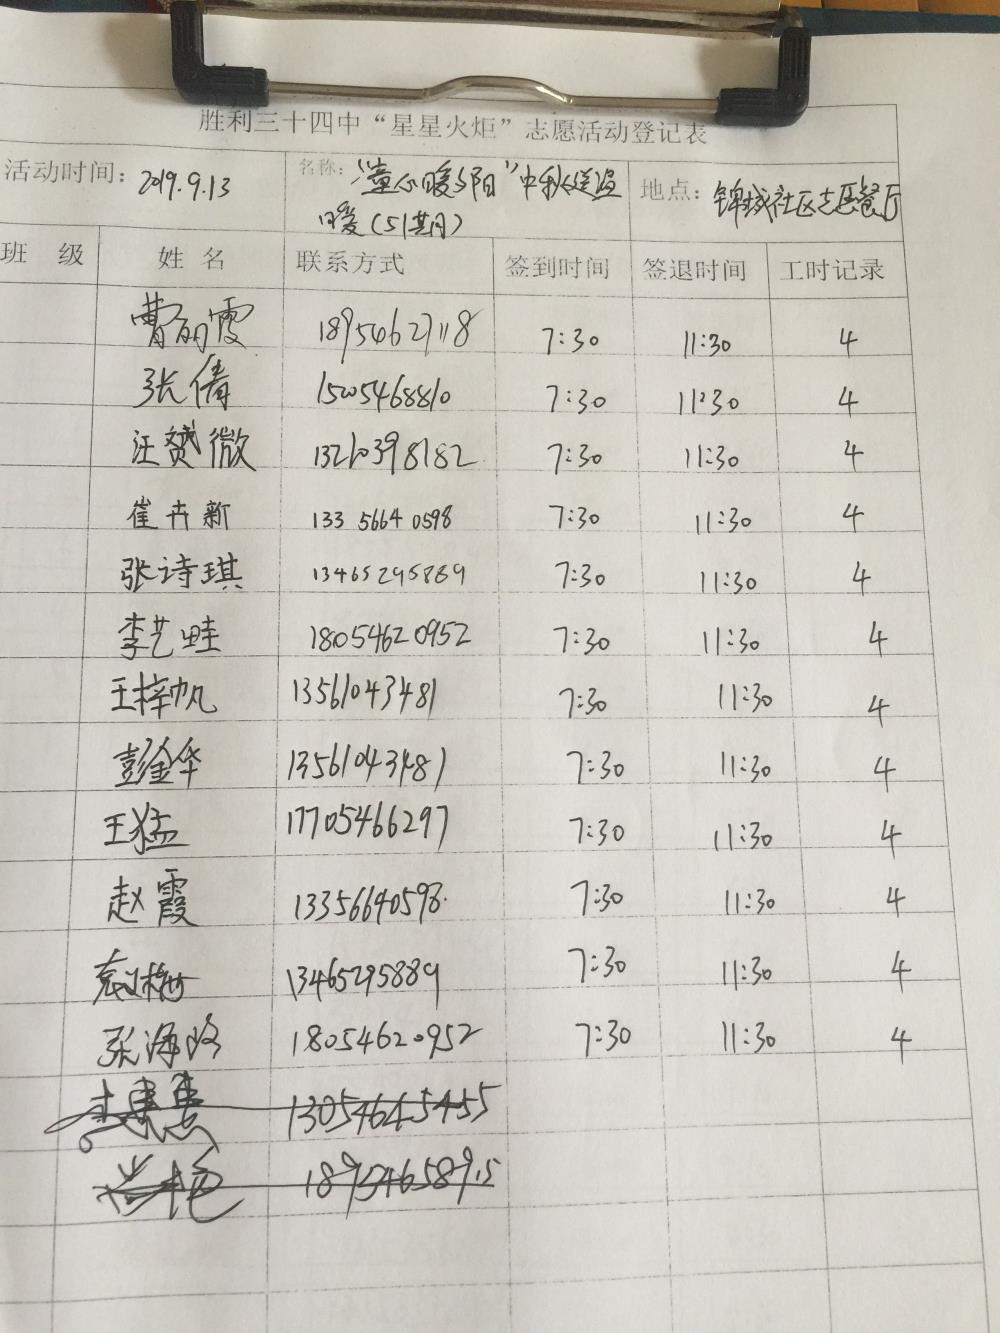 胜利三十四中“星星火炬”志愿活动登记表
活动时间：2019.9.13 名称：“童心暖夕阳”中秋送温 地点：锦城社区老区餐厅
暖（51期）
班 级 姓 名 联系方式 签到时间 签退时间 工时记录
曹丽霞 18954627118 7:30 11:30 4
张倩 15005468810 7:30 11:30 4
汪赟微 13210398182 7:30 11:30 4
崔卉新 133 5664 0598 7:30 11:30 4
张诗琪 13465295889 7:30 11:30 4
李艺畦 18054620952 7:30 11:30 4
王梓帆 13561043481 7:30 11:30 4
彭金华 13561043481 7:30 11:30 4
王猛 17705466297 7:30 11:30 4
赵霞 13356640598 7:30 11:30 4
袁梅 13465295889 7:30 11:30 4
张海 18054620952 7:30 11:30 4
13054645455
18954658915